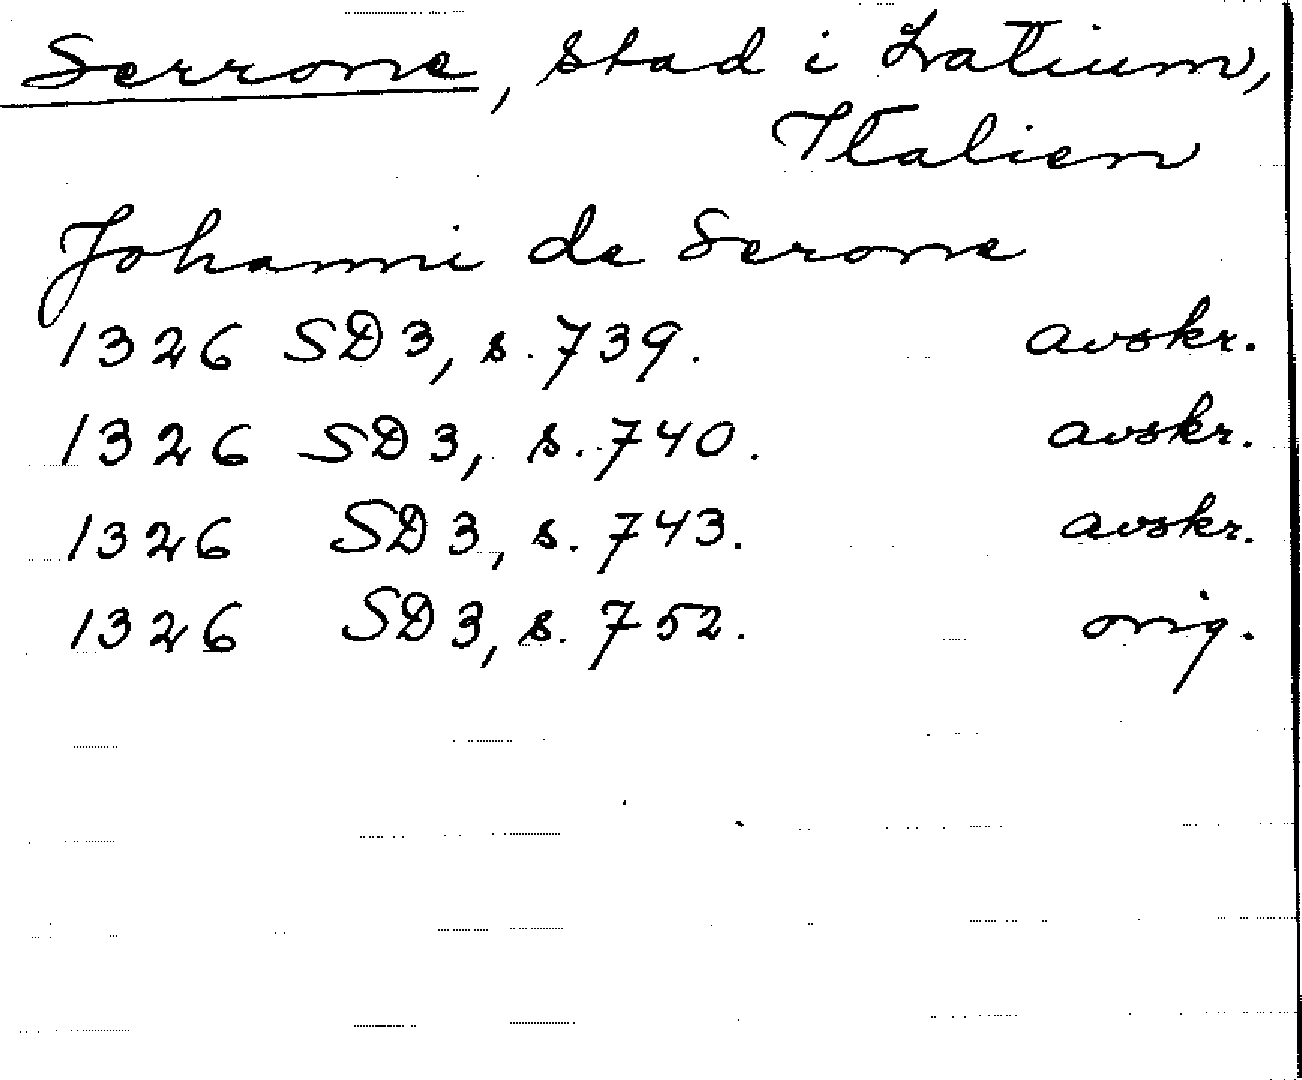 Serrone, stad i Latium,
Italien
Johanni de Serone
1326 SD 3, s. 739. avskr.
1326 SD 3, s. 740. avskr.
1326 SD 3, s. 743. avskr.
1326 SD 3, s. 752. orig.